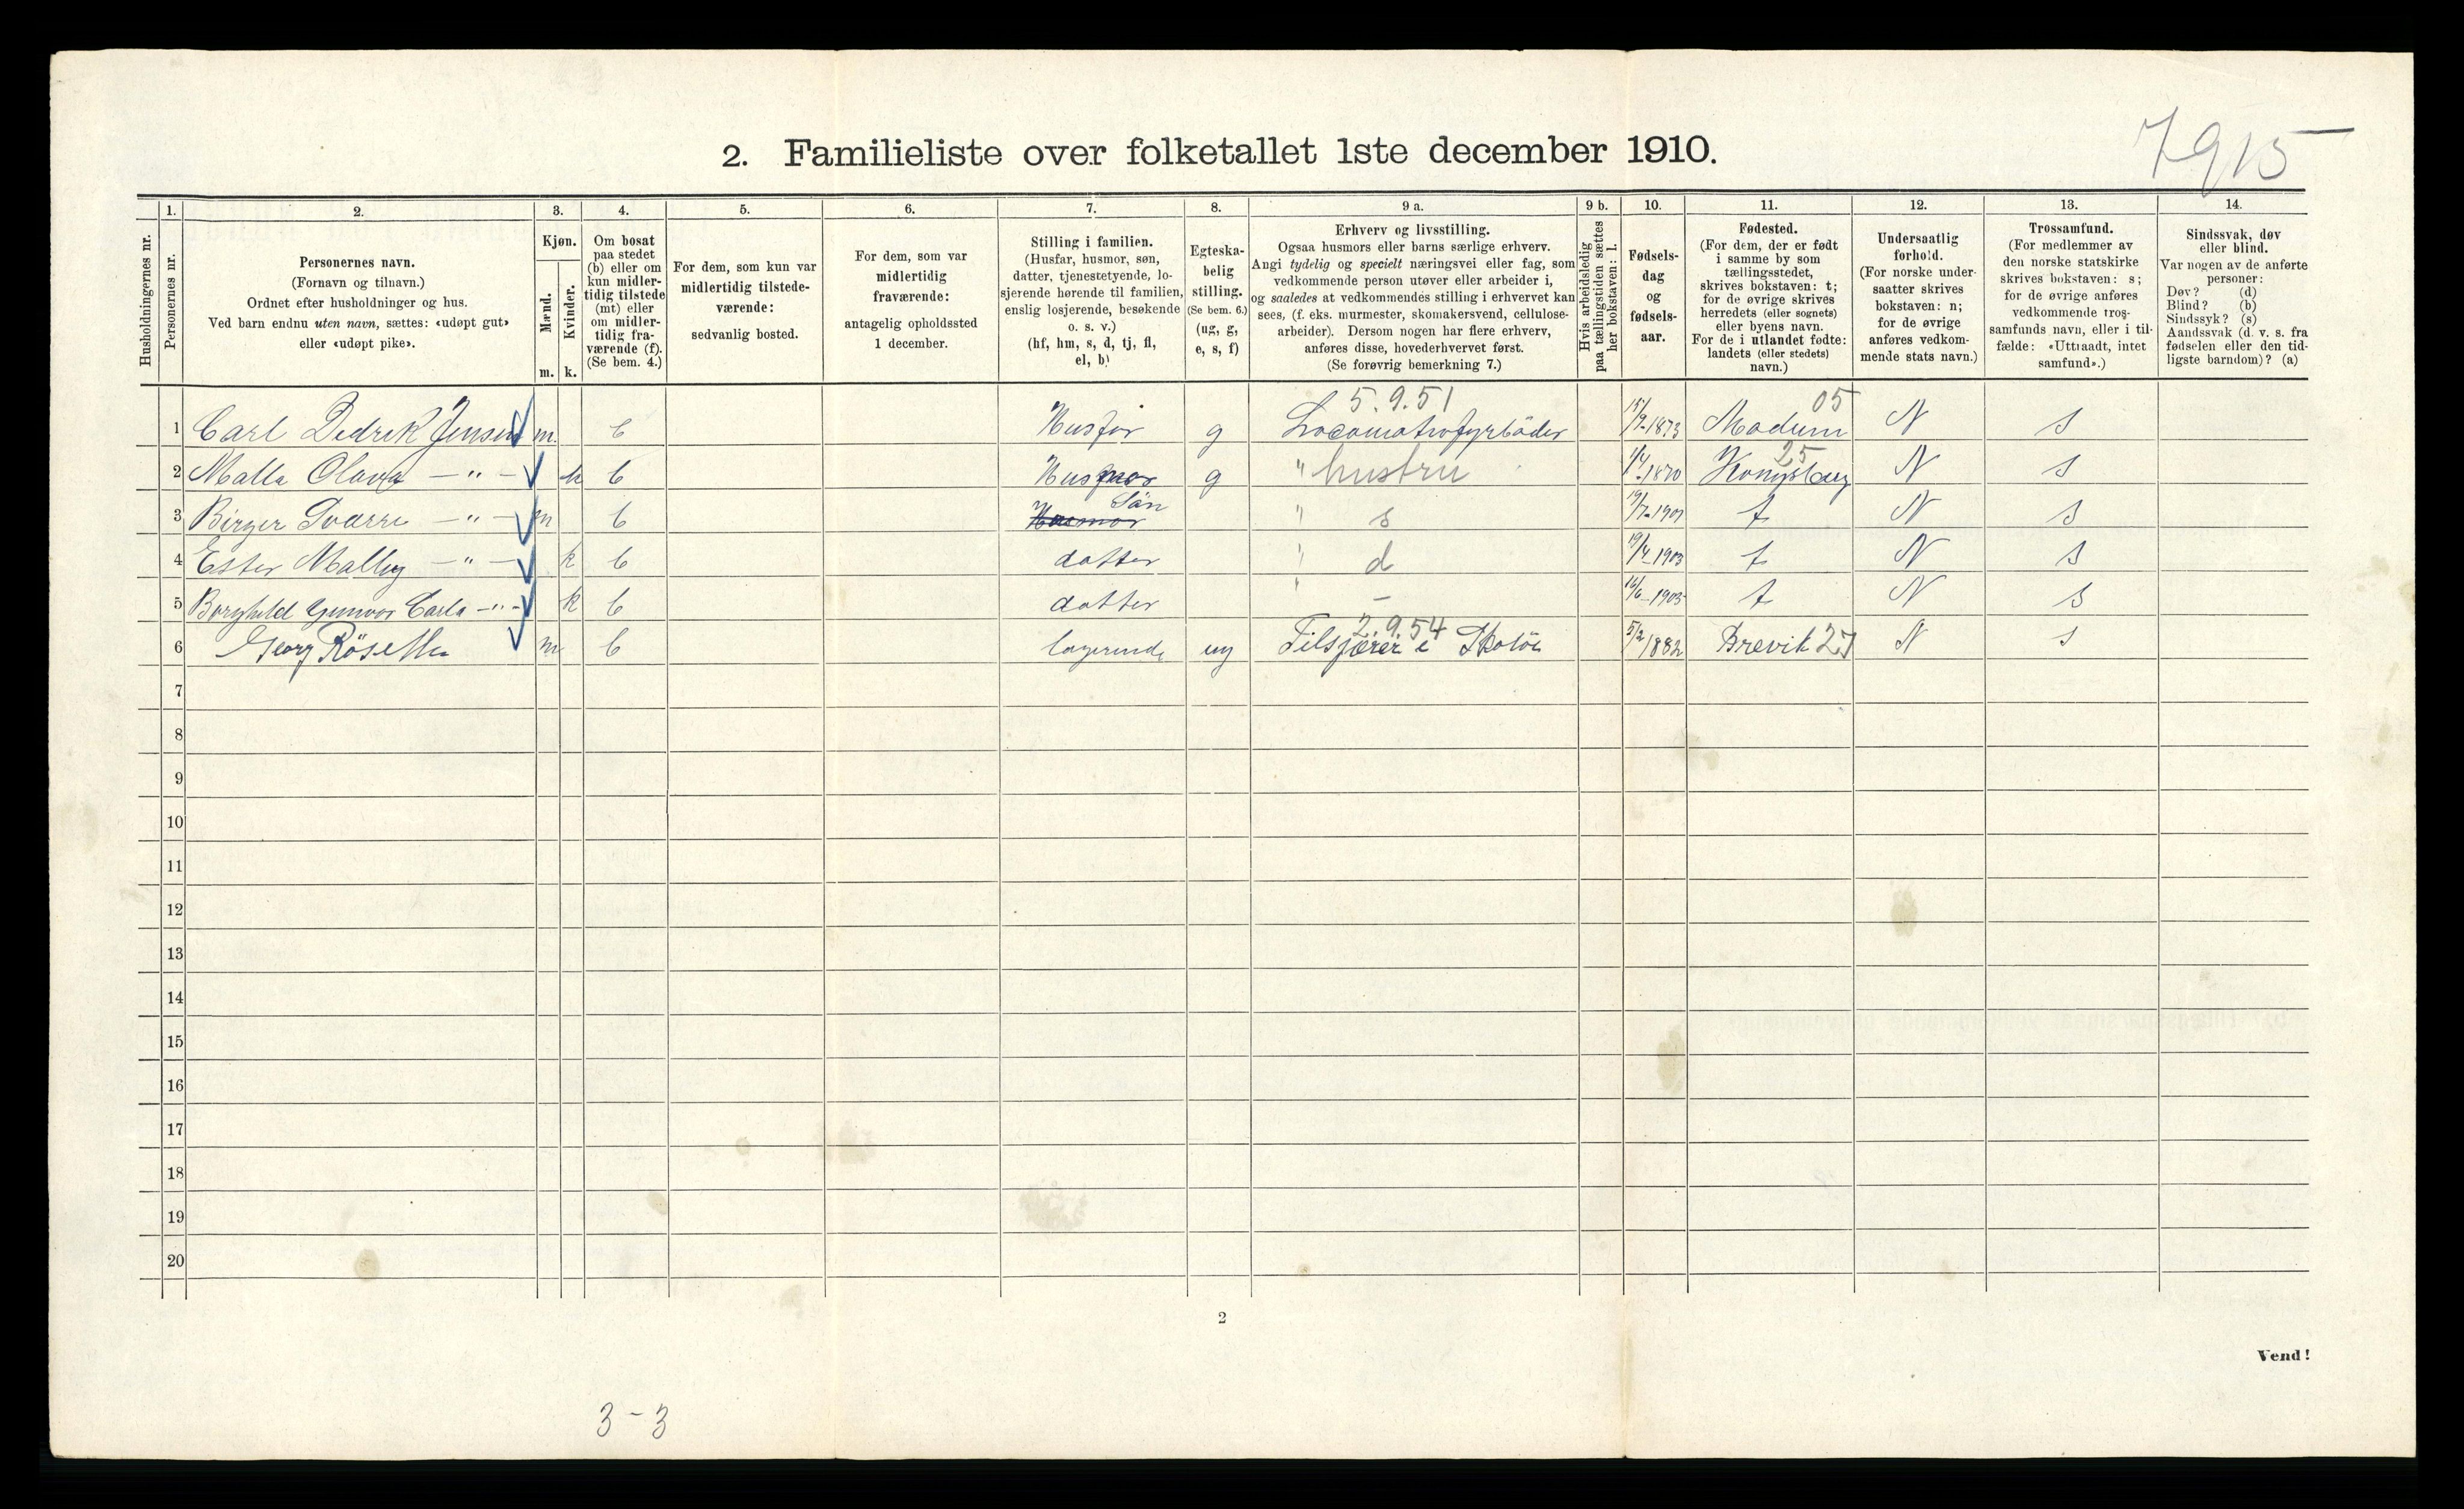 7915
2. Familieliste over folketallet 1ste december 1910.
1. 2. 3. 4. 5. 6. 7. 8. 9 a. 9 b. 10. 11. 12. 13. 14.
Husholdningernes nr.
Personernes nr.
Personernes navn.
(Fornavn og tilnavn.)
Ordnet efter husholdninger og hus.
Ved barn endnu uten navn, sættes: «udøpt gut»
eller «udøpt pike».
Kjøn.
Mænd.
Kvinder.
m. k.
Om bosat
paa stedet
(b) eller om
kun midler-
tidig tilstede
(mt) eller
om midler-
tidig fra-
værende (f).
(Se bem. 4.)
For dem, som kun var
midlertidig tilstede-
værende:
sedvanlig bosted.
For dem, som var
midlertidig
fraværende:
antagelig opholdssted
1 december.
Stilling i familien.
(Husfar, husmor, søn,
datter, tjenestetyende, lo-
sjerende hørende til familien,
enslig losjerende, besøkende
o. s. v.)
(hf, hm, s, d, tj, fl,
el, b)
Egteska-
belig
stilling.
(Se bem. 6.)
(ug, g,
e, s, f)
Erhverv og livsstilling.
Ogsaa husmors eller barns særlige erhverv.
Angi tydelig og specielt næringsvei eller fag, som
vedkommende person utøver eller arbeider i,
og saaledes at vedkommendes stilling i erhvervet kan
sees, (f. eks. murmester, skomakersvend, cellulose-
arbeider). Dersom nogen har flere erhverv,
anføres disse, hovederhvervet først.
(Se forøvrig bemerkning 7.)
Hvis arbeidsledig
paa tællingstiden sættes
her bokstaven: l.
Fødsels-
dag
og
fødsels-
aar.
Fødested.
(For dem, der er født
i samme by som
tællingsstedet,
skrives bokstaven: t;
for de øvrige skrives
herredets (eller sognets)
eller byens navn.
For de i utlandet fødte:
landets (eller stedets)
navn.)
Undersaatlig
forhold.
(For norske under-
saatter skrives
bokstaven: n;
for de øvrige
anføres vedkom-
mende stats navn.)
Trossamfund.
(For medlemmer av
den norske statskirke
skrives bokstaven: s;
for de øvrige anføres
vedkommende tros-
samfunds navn, eller i til-
fælde: «Uttraadt, intet
samfund».)
Sindssvak, døv
eller blind.
Var nogen av de anførte
personer:
Døv? (d)
Blind? (b)
Sindssyk? (s)
Aandssvak (d. v. s. fra
fødselen eller den tid-
ligste barndom)? (a)
5.9.51 05
1 Carl Dedrek Jensen m. b Husfar g Locomotivfyrböder 15/9-1873 Modum N S
25
2 Malla Olava — " — k b Husmor g " hustru 1/4-1870 Kongsberg N S
Sön
3 Birger Sværre — " — m b Husmor " s 19/7-1901 t N S
4 Ester Mally — " — k b datter " d 19/4-1903 t N S
5 Borghild Gunvor Carla — " — k b datter " — 16/6-1905 t N S
2.9.54
6 Georg m b logerende ug i 5/2 1882 Brevik 27 N S
7
8
9
10
11
12
13
14
15
16
17
18
19
20
2
Vend!
3-3